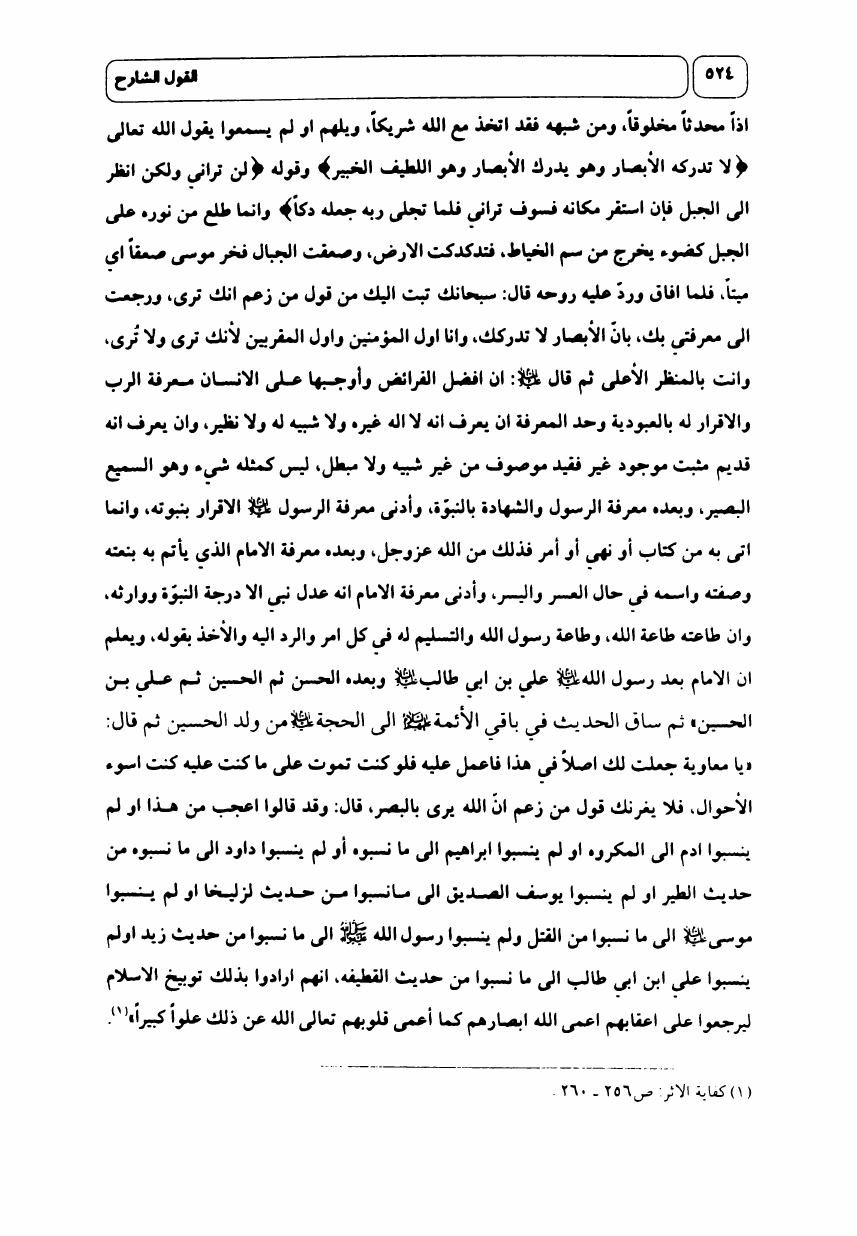 ٥٢٤
القول الشارح
اذاً محدثاً مخلوقاً، ومن شبهه فقد اتخذ مع الله شريكاً، ويلهم او لم يسمعوا يقول الله تعالى
﴿لا تدركه الأبصار وهو يدرك الأبصار وهو اللطيف الخبير﴾ وقوله ﴿لن تراني ولكن انظر
الى الجبل فإن استقر مكانه فسوف تراني فلما تجلى ربه جعله دكاً﴾ وانما طلع من نوره على
الجبل كضوء يخرج من سم الخياط، فتدكدكت الارض، وصعقت الجبال فخر موسى صعقاً اي
ميتاً، فلما افاق وردّ عليه روحه قال: سبحانك تبت اليك من قول من زعم انك ترى، ورجعت
الى معرفتي بك، بانّ الأبصار لا تدركك، وانا اول المؤمنين واول المقربين لأنك ترى ولا تُرى،
وانت بالمنظر الأعلى ثم قال ﷷ: ان افضل الفرائض وأوجبها على الانسان معرفة الرب
والاقرار له بالعبودية وحد المعرفة ان يعرف انه لا اله غيره ولا شبيه له ولا نظير، وان يعرف انه
قديم مثبت موجود غير فقيد موصوف من غير شبيه ولا مبطل، ليس كمثله شيء وهو السميع
البصير، وبعده معرفة الرسول والشهادة بالنبوّة، وأدنى معرفة الرسول ﷷ الاقرار بنبوته، وانما
اتى به من كتاب أو نهي أو أمر فذلك من الله عزوجل، وبعده معرفة الامام الذي يأتم به بنعته
وصفته واسمه في حال العسر واليسر، وأدنى معرفة الامام انه عدل نبي الا درجة النبوّة ووارثه،
وان طاعته طاعة الله، وطاعة رسول الله والتسليم له في كل امر والرد اليه والأخذ بقوله، ويعلم
ان الامام بعد رسول اللهﷷ علي بن ابي طالبﷷ وبعده الحسن ثم الحسين ثم علي بن
الحسين» ثم ساق الحديث في باقي الأئمة الى الحجةﷷ من ولد الحسين ثم قال:
«يا معاوية جعلت لك اصلاً في هذا فاعمل عليه فلو كنت تموت على ما كنت عليه كنت اسوء
الأحوال، فلا يغرنك قول من زعم انّ الله يرى بالبصر، قال: وقد قالوا اعجب من هذا او لم
ينسبوا ادم الى المكروه او لم ينسبوا ابراهيم الى ما نسبوه أو لم ينسبوا داود الى ما نسبوه من
حديث الطير او لم ينسبوا يوسف الصديق الى مانسبوا من حديث لزليخا او لم ينسبوا
موسىﷷ الى ما نسبوا من القتل ولم ينسبوا رسول الله ﷺ الى ما نسبوا من حديث زيد اولم
ينسبوا علي ابن ابي طالب الى ما نسبوا من حديث القطيفه، انهم ارادوا بذلك توبيخ الاسلام
ليرجعوا على اعقابهم اعمى الله ابصارهم كما أعمى قلوبهم تعالى الله عن ذلك علواً كبيراً»(١).
(١) كفاية الاثر: ص٢٥٦ ـ ٢٦٠.